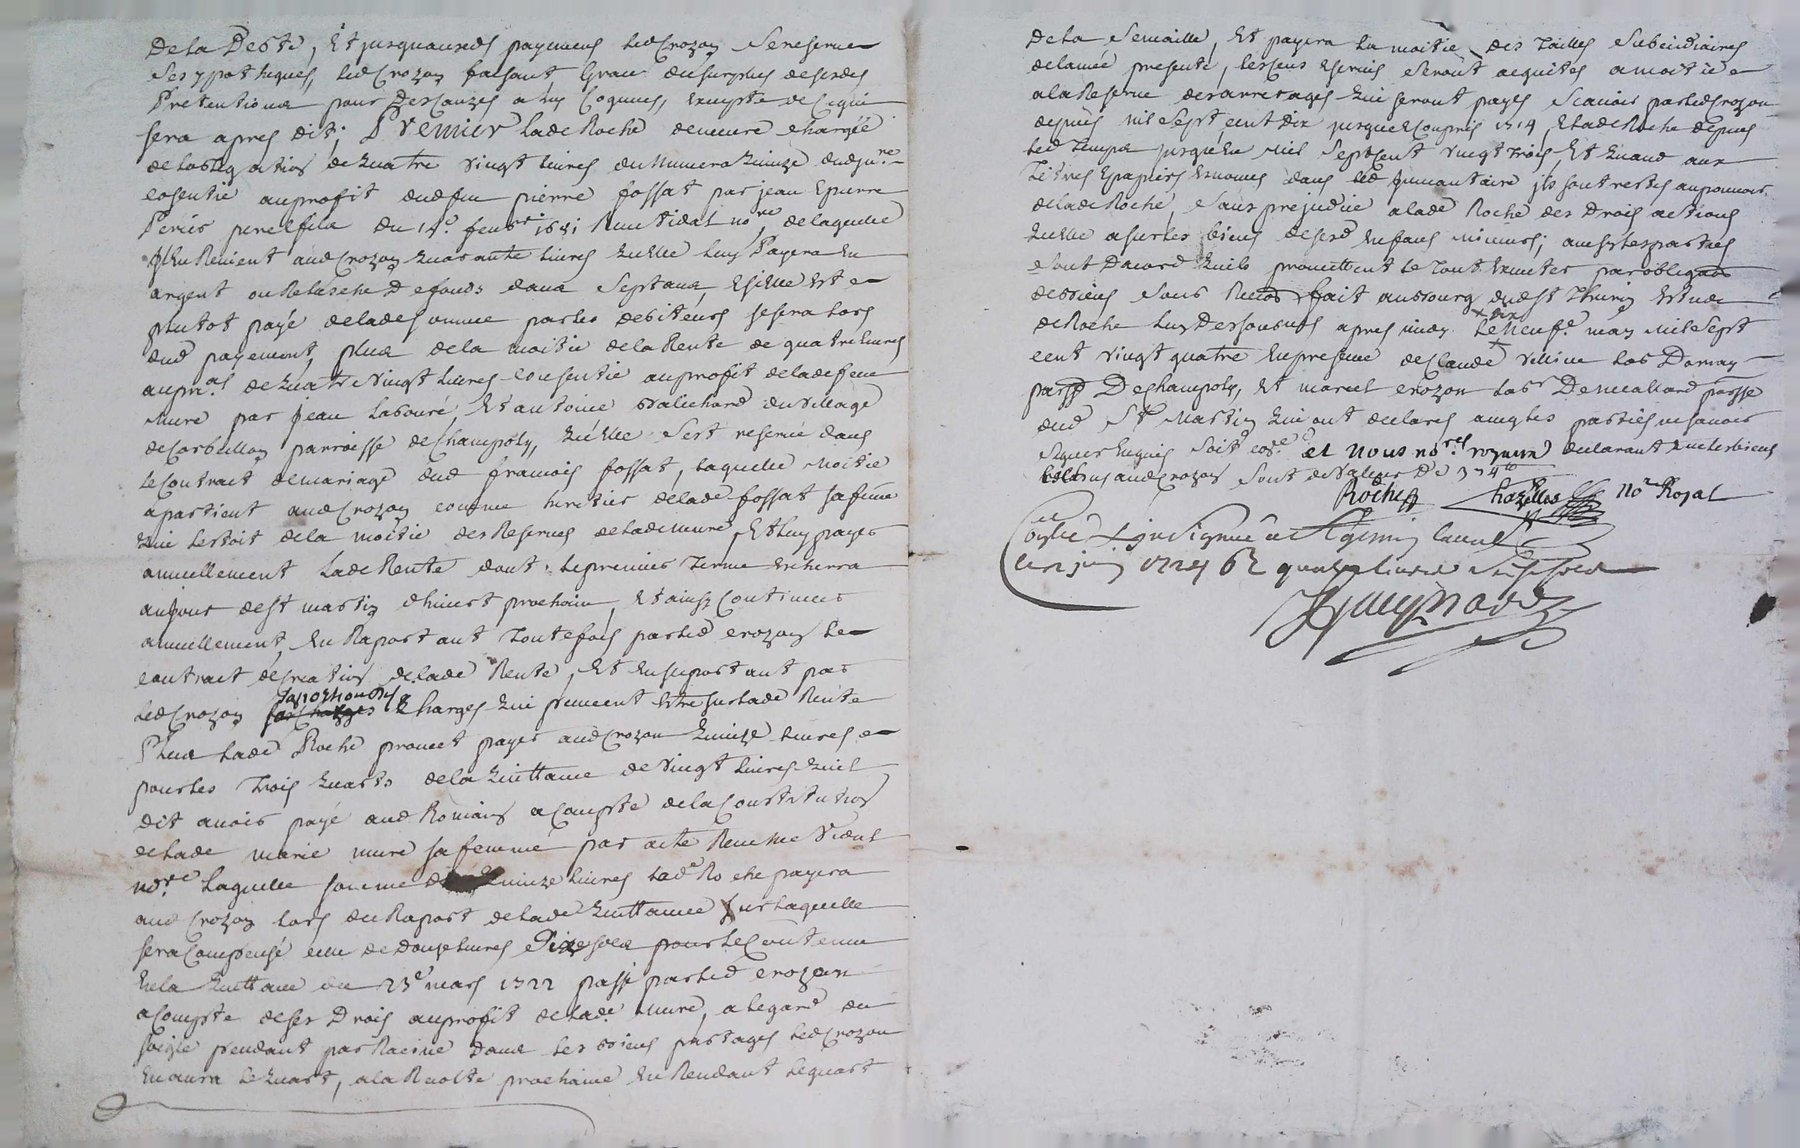 De la Deste, Et jusquauxds paymens led Crozon se reserve
ses ypotheques, led Crozon faisant Grace du surplus de sesdes
Pretentions pour Des Causes a luy Cognues, Excepte de Ce qui
sera apres dit; Premier lade Roche demeure chargée
de lobligation de quatre vingt livres du Numero quinze dud jnre
cosentie au profit dud feu pierre fossat par jean Epierre
Periés pere et fils du 14e febvr 1681 Reçue Vidal nore, de laquelle
jl En Revient aud Crozon quarante livres quelle luy Payera En
argent ou Relasche De fonds dans Sept ans, Esielle Est
plutot payé de lade somme par les debiteurs se sera lors
dud payement, plus de la moitie de la Rente de quatre livres
au pral de quatre vingt livres consentie au profit de lade
Mure par jean labouré, Et antoine du village
de Corbillon parroisse de Champoly, qu'Elle s'est reservé dans
le Contract de mariage dud françois fossat, laquelle moitie
apartient aud Crozon comme heretier de lade fossat sa feme
qui lestoit de la moitie des Reserves de lade mure, Et luy payer
annuellement lade Rente dont le premier terme Echerra
au jour de st martin d'hivert prochain, Et ainsy Continuer
annuellement, En Raportant toutefois par led Crozon le
contract de Creation de lade Rente, Et En suportant par
led Crozon les Charges qui peuvent Estre sur lade Rente
Plus lade Roche promet payer aud Crozon quinze livres
pour les trois quarts de la quittance de vingt livres quil
dit avoir payé aud Romain a Compte de la Constitution
de lade marie mure sa femme par acte Reçu Me Vidal
nore laquelle somme de quinze livres lade Roche payera
aud Crozon lors du Raport de lade quittance sur laquelle
sera Compensé celle de douze livres dix sols pour le Contenu
En la quittance du 23e mars 1722 passé par led Crozon
a Compte de ses Drois au profit de lade mure, a legard du
seigle pendant par Racine dans les biens partagés led Crozon
En aura le quart, a la Recolte prochaine En Rendant le quart
de la Semaille, Et payera la moitié des Tailles Subcidiaires
de lannée presente, les cens Eservis seront acquites a moitié
a la Reserve des arrerages qui seront payés Scavoir par led Crozon
depuis mil Sept cent Dix jusques Compris 1714, Et lade Roche depuis
led Temps jusquen Mil Sept Cent vingt trois, Et quand aux
Titres Epapiers Enoncés dans led jnvantaire jls sont restés au pouvoir
de lade Roche, Sans prejudice a lade Roche des Drois actions
quelle a sur les biens de sesd Enfans Mineurs; ainsy les parties
sont Dacord quils promettent le Tout Executer par obligaon
de biens Sous Recos fait au bourg dud St Thurin Estude
de Roche luy Dessoubs apres midy Le dix Neufe may Mil Sept
cent vingt quatre En presence de Claude lab Dumay
parsse De Champoly, Et marcel Crozon labr parsse
dud St Martin qui ont declaré avec les parties ne Scavoir
Signer Enquis Soit Coe et Nous nores royaux declarant que les biens
aud Crozon Sont de valeur De 374
Roche Chazelles Nore Royal